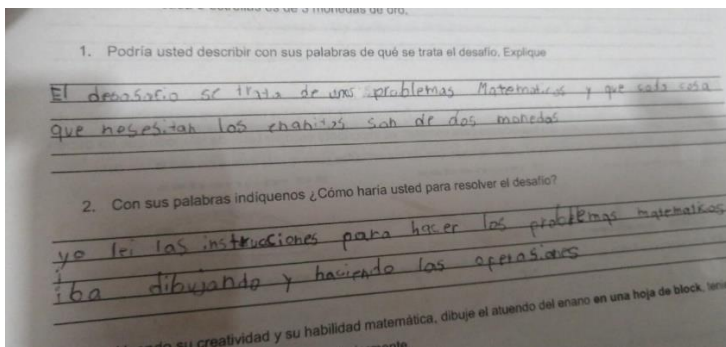 1. Podría usted describir con sus palabras de qué se trata el desafío. Explique
El desasafio se trata de unos problemas Matematicos y que cada cosa
que nesesitan los enanitos son de dos monedas
2. Con sus palabras indíquenos ¿Cómo haría usted para resolver el desafío?
yo lei las instrucciones para hacer los problemas matematicos
iba dibujando y haciendo las operasiones
su creatividad y su habilidad matemática, dibuje el atuendo del enano en una hoja de block,